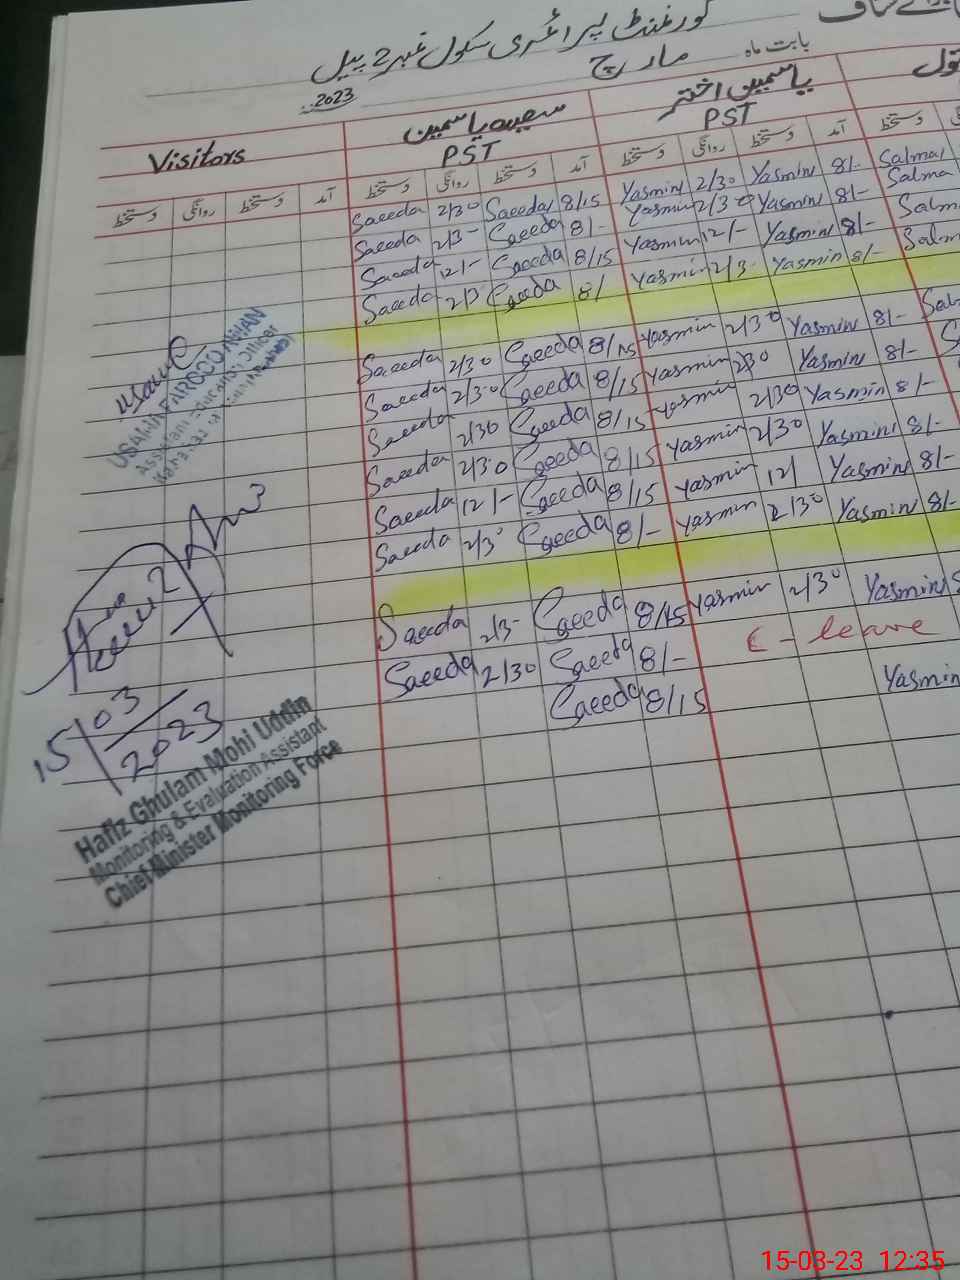 گورنمنٹ پرائمری سکول نمبر 2 پیل
بابت ماہ مارچ 2023
Visitors سعیدہ یاسمین یاسمین اختر
PST PST
دستخط روانگی دستخط آمد دستخط روانگی دستخط آمد دستخط روانگی دستخط آمد دستخط
Saeeda 2/30 Saeeda 8/15 Yasmin 2/30 Yasmin 8/- Salma
Saeeda 2/3- Saeeda 8/- Yasmin 2/30 Yasmin 8/- Salma
Saeeda 12/- Saeeda 8/15 Yasmin 12/- Yasmin 8/- Salm
Saeeda 2/3 Saeeda 8/ Yasmin 2/3 Yasmin 8/- Salm
Saeeda 2/30 Saeeda 8/15 Yasmin 2/30 Yasmin 8/- Sal
Saeeda 2/30 Saeeda 8/15 Yasmin 2/30 Yasmin 8/- S
Saeeda 2/30 Saeeda 8/15 Yasmin 2/30 Yasmin 8/-
Saeeda 2/30 Saeeda 8/15 Yasmin 2/30 Yasmin 8/-
Saeeda 12/- Saeeda 8/15 Yasmin 12/ Yasmin 8/-
Saeeda 2/3 Saeeda 8/- Yasmin 2/30 Yasmin 8/-
Saeeda 2/3- Saeeda 8/15 Yasmin 2/30 Yasmin 8
Saeeda 2/30 Saeeda 8/- C - leave
Saeeda 8/15 Yasmin
USAMA FAROOQ AWAN
Assistant Education Officer
15/03/2023
Hafiz Ghulam Mohi Uddin
Monitoring & Evaluation Assistant
Chief Minister Monitoring Force
15-03-23 12:35